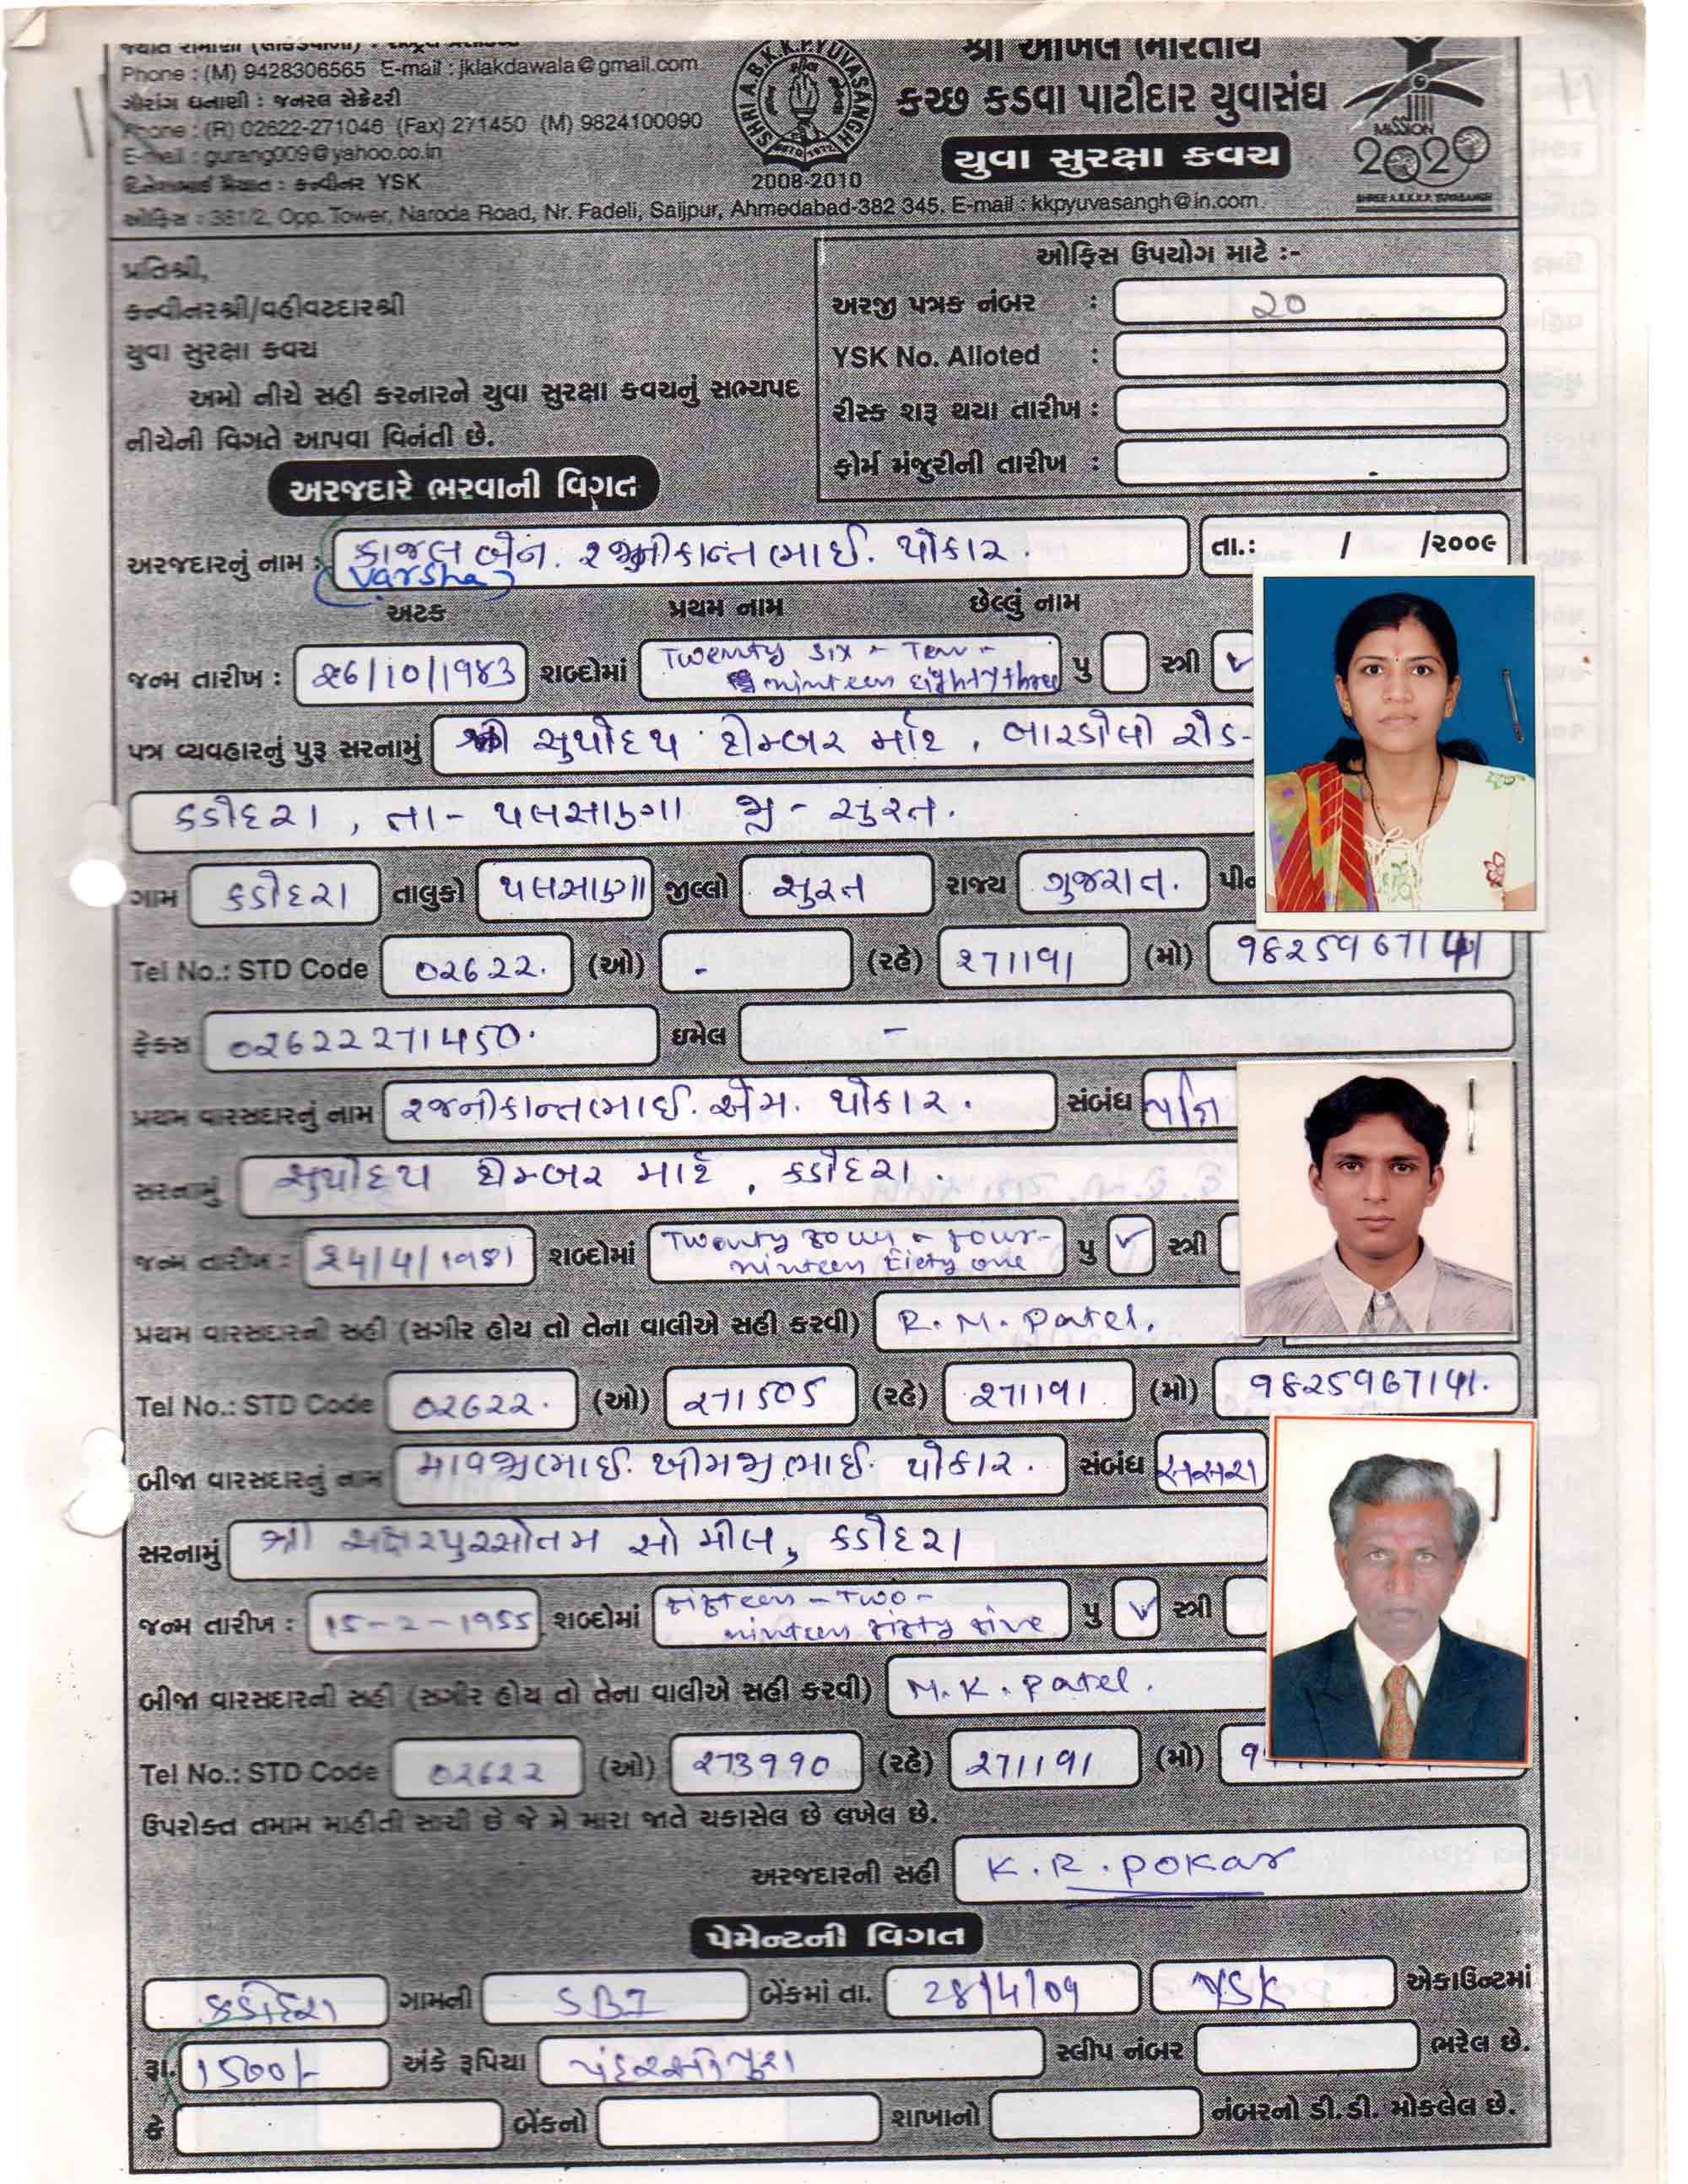 Phone : (M) 9428306565 E-mail : jklakdawala@gmail.com
ગૌરાંગ ધનાણી : જનરલ સેક્રેટરી
Phone : (R) 02622-271046 (Fax) 271450 (M) 9824100090
E-mail : gurang009@yahoo.co.in
કન્વીનર YSK
ઓફિસ : 381/2, Opp. Tower, Naroda Road, Nr. Fadeli, Saijpur, Ahmedabad-382 345. E-mail : kkpyuvasangh@in.com
SHRI A.B.K.K.P. YUVASANGH
2008-2010
શ્રી અખિલ ભારતીય
કચ્છ કડવા પાટીદાર યુવાસંઘ
યુવા સુરક્ષા કવચ
MISSION
2020
SHREE A.B.K.K.P. YUVASANGH
પ્રતિશ્રી,
કન્વીનરશ્રી/વહીવટદારશ્રી
યુવા સુરક્ષા કવચ
અમો નીચે સહી કરનારને યુવા સુરક્ષા કવચનું સભ્યપદ
નીચેની વિગતે આપવા વિનંતી છે.
ઓફિસ ઉપયોગ માટે :-
અરજી પત્રક નંબર : ૨૦
YSK No. Alloted :
રીસ્ક શરૂ થયા તારીખ :
ફોર્મ મંજુરીની તારીખ :
અરજદારે ભરવાની વિગત
અરજદારનું નામ : કાજલ બેન. રજનીકાન્તભાઈ. પોકાર. તા.: / /૨૦૦૯
(Varsha)
અટક પ્રથમ નામ છેલ્લું નામ
જન્મ તારીખ : ૨6/10/19૮3 શબ્દોમાં Twenty six - Ten - ninteen eighty three પુ સ્ત્રી ✓
પત્ર વ્યવહારનું પુરૂ સરનામું શ્રી સુર્યોદય ટીમ્બર માર્ટ, બારડોલી રોડ-
કડોદરા, તા- પલસાણા જી - સુરત.
ગામ કડોદરા તાલુકો પલસાણા જીલ્લો સુરત રાજ્ય ગુજરાત. પીન
Tel No.: STD Code 02622. (ઓ) - (રહે) ૨71191 (મો) 9825967141
ફેક્સ 02622271450. ઇમેલ -
પ્રથમ વારસદારનું નામ રજનીકાન્તભાઈ. એમ. પોકાર. સંબંધ પતિ
સરનામું સુર્યોદય ટીમ્બર માર્ટ, કડોદરા.
જન્મ તારીખ : ૨4/4/1981 શબ્દોમાં Twenty four - four - ninteen eiety one પુ ✓ સ્ત્રી
પ્રથમ વારસદારની સહી (સગીર હોય તો તેના વાલીએ સહી કરવી) R. M. Patel.
Tel No.: STD Code 02622. (ઓ) ૨71505 (રહે) ૨71191 (મો) 9825967141.
બીજા વારસદારનું નામ માવજીભાઈ. ખીમજીભાઈ. પોકાર. સંબંધ સસરા
સરનામું શ્રી અક્ષરપુરસોતમ સો મીલ, કડોદરા
જન્મ તારીખ : 15-2-1955 શબ્દોમાં fifteen - Two - ninteen fifty five પુ ✓ સ્ત્રી
બીજા વારસદારની સહી (સગીર હોય તો તેના વાલીએ સહી કરવી) M. K. Patel.
Tel No.: STD Code 02622 (ઓ) ૨73990 (રહે) ૨71191 (મો) 9
ઉપરોક્ત તમામ માહીતી સાચી છે જે મે મારા જાતે ચકાસેલ છે લખેલ છે.
અરજદારની સહી K. R. Pokar
પેમેન્ટની વિગત
કડોદરા ગામની SBI બેંકમાં તા. 28/4/09 YSK એકાઉન્ટમાં
રૂા. 1500/- અંકે રૂપિયા પંદરસો પુરા સ્લીપ નંબર ભરેલ છે.
કે બેંકનો શાખાનો નંબરનો ડી.ડી. મોકલેલ છે.